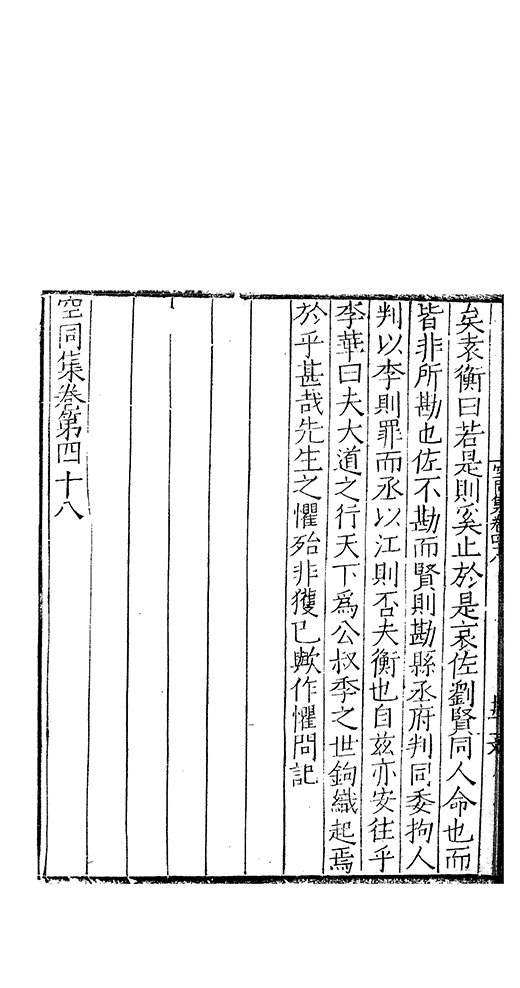 矣袁衡曰若是則奚止於是哀佐劉賢同人命也而
皆非所勘也佐不勘而賢則勘縣丞府判同委拘人
判以李則罪而丞以江則否夫衡也自兹亦安往乎
李華曰夫大道之行天下爲公叔季之世鉤織起焉
於乎甚哉先生之懼殆非獲已歟作懼問記
空同集卷第四十八
空同集卷四十八